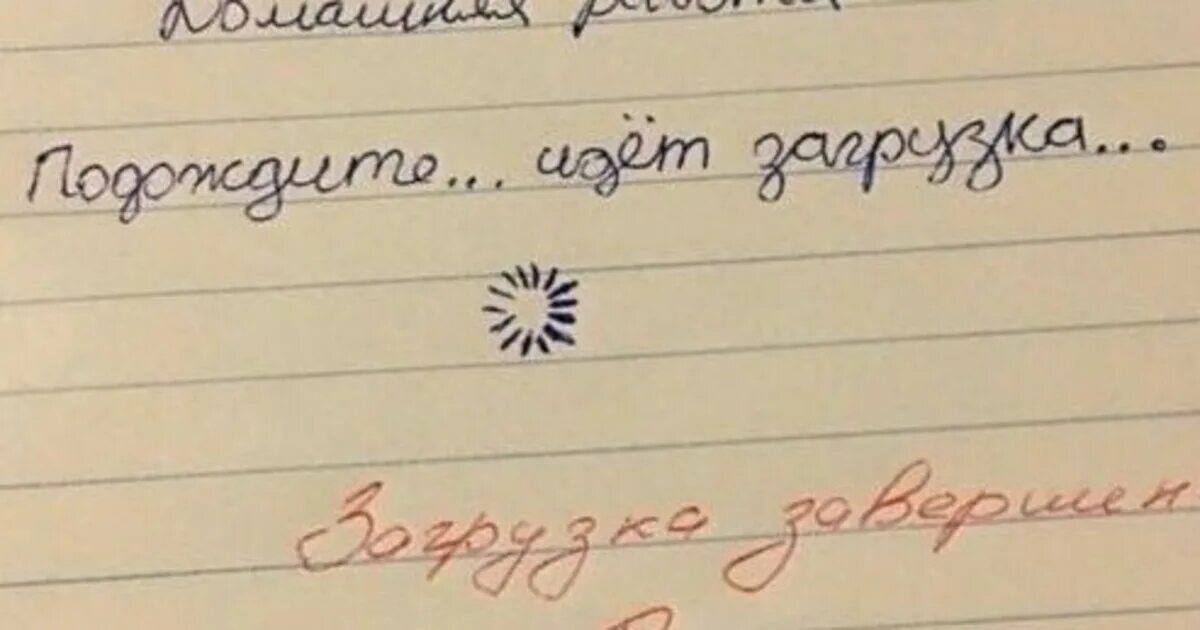 Домашняя работа
Подождите... идёт загрузка...
Загрузка завершен